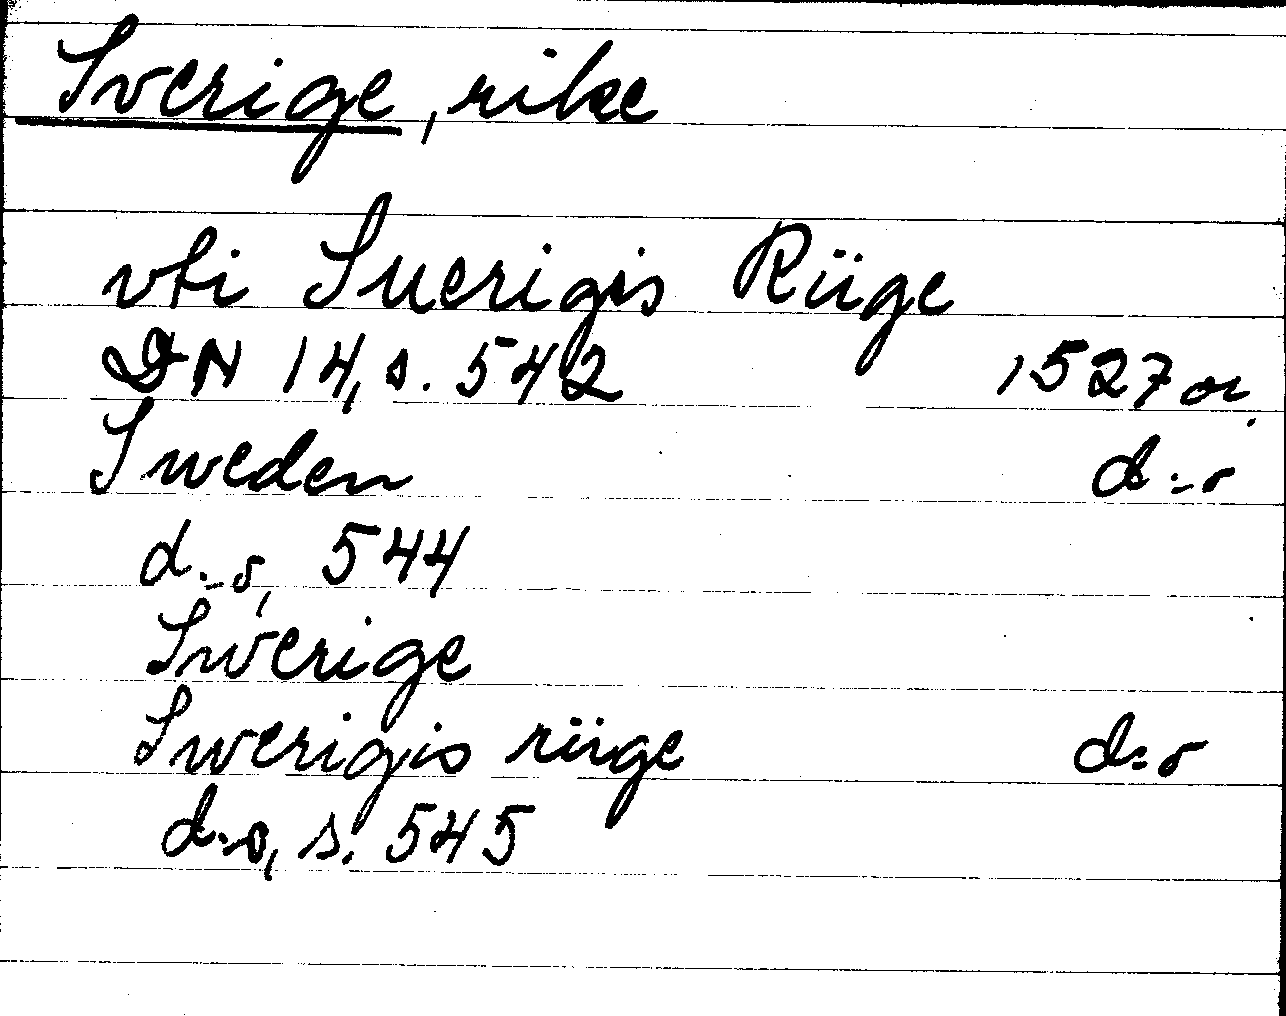 Sverige, rike
vti Suerigis Rüge
DN 14, s. 542 1527 or.
Sweden d:o
d:o, 544
Swerige
Swerigis rüge d:o
d:o, s. 545